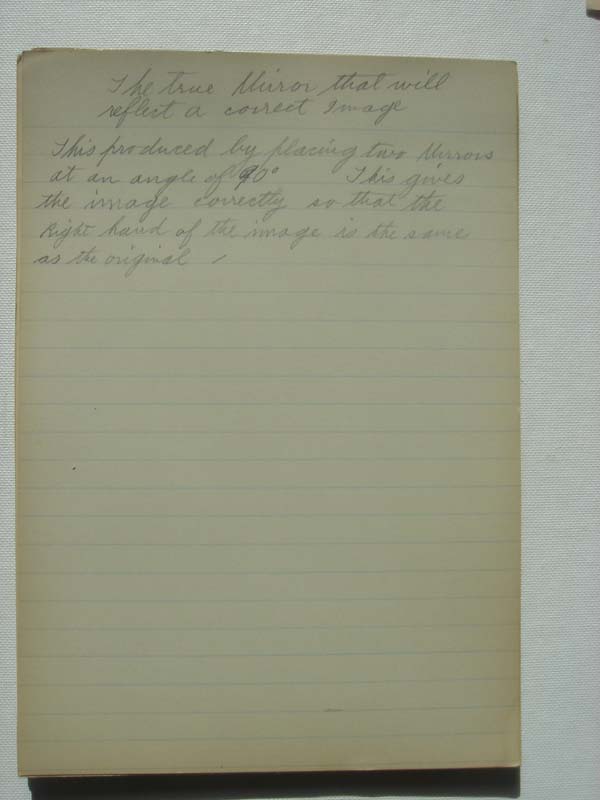 The true Mirror that will
reflect a correct Image
This produced by placing two Mirrors
at an angle of 90° This gives
the image correctly so that the
Right hand of the image is the same
as the original